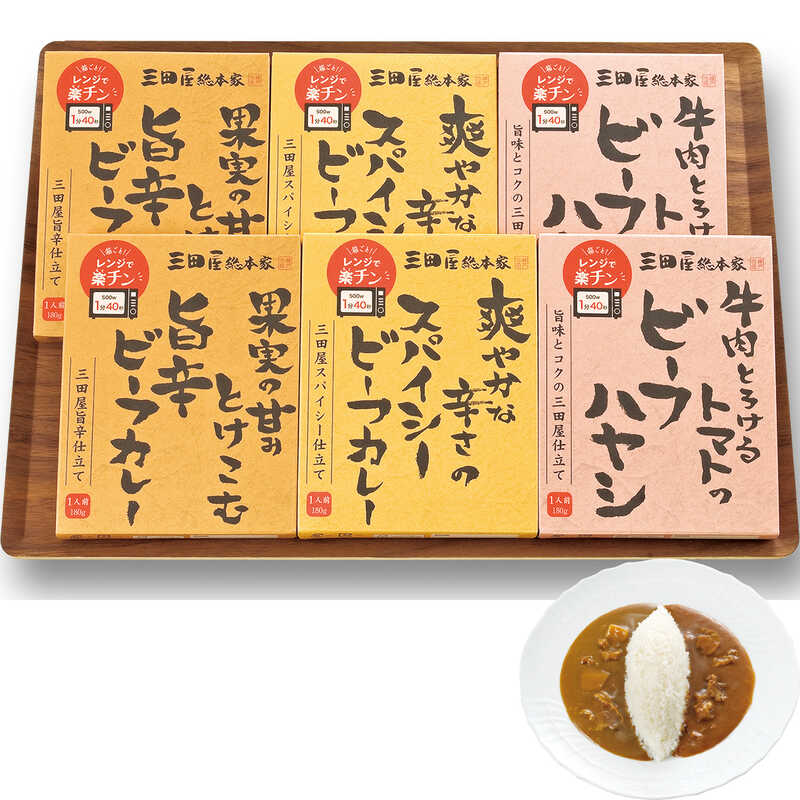 箱ごと!
レンジで
楽チン
500W
1分40秒
三田屋総本家
果実の甘み
とけ
旨辛
ビーフ
三田屋旨辛仕立て
1人前
180g
箱ごと!
レンジで
楽チン
500W
1分40秒
三田屋総本家
爽やかな
辛
スパイシー
ビーフ
三田屋スパイシ
箱ごと!
レンジで
楽チン
500W
1分40秒
三田屋総本家
牛肉とろけ
トマ
ビーフ
ハ
旨味とコクの三田
箱ごと!
レンジで
楽チン
500W
1分40秒
三田屋総本家
果実の甘み
とけこむ
旨辛
ビーフカレー
三田屋旨辛仕立て
1人前
180g
箱ごと!
レンジで
楽チン
500W
1分40秒
三田屋総本家
爽やかな
辛さの
スパイシー
ビーフカレー
三田屋スパイシー仕立て
1人前
180g
箱ごと!
レンジで
楽チン
500W
1分40秒
三田屋総本家
牛肉とろける
トマトの
ビーフ
ハヤシ
旨味とコクの三田屋仕立て
1人前
180g